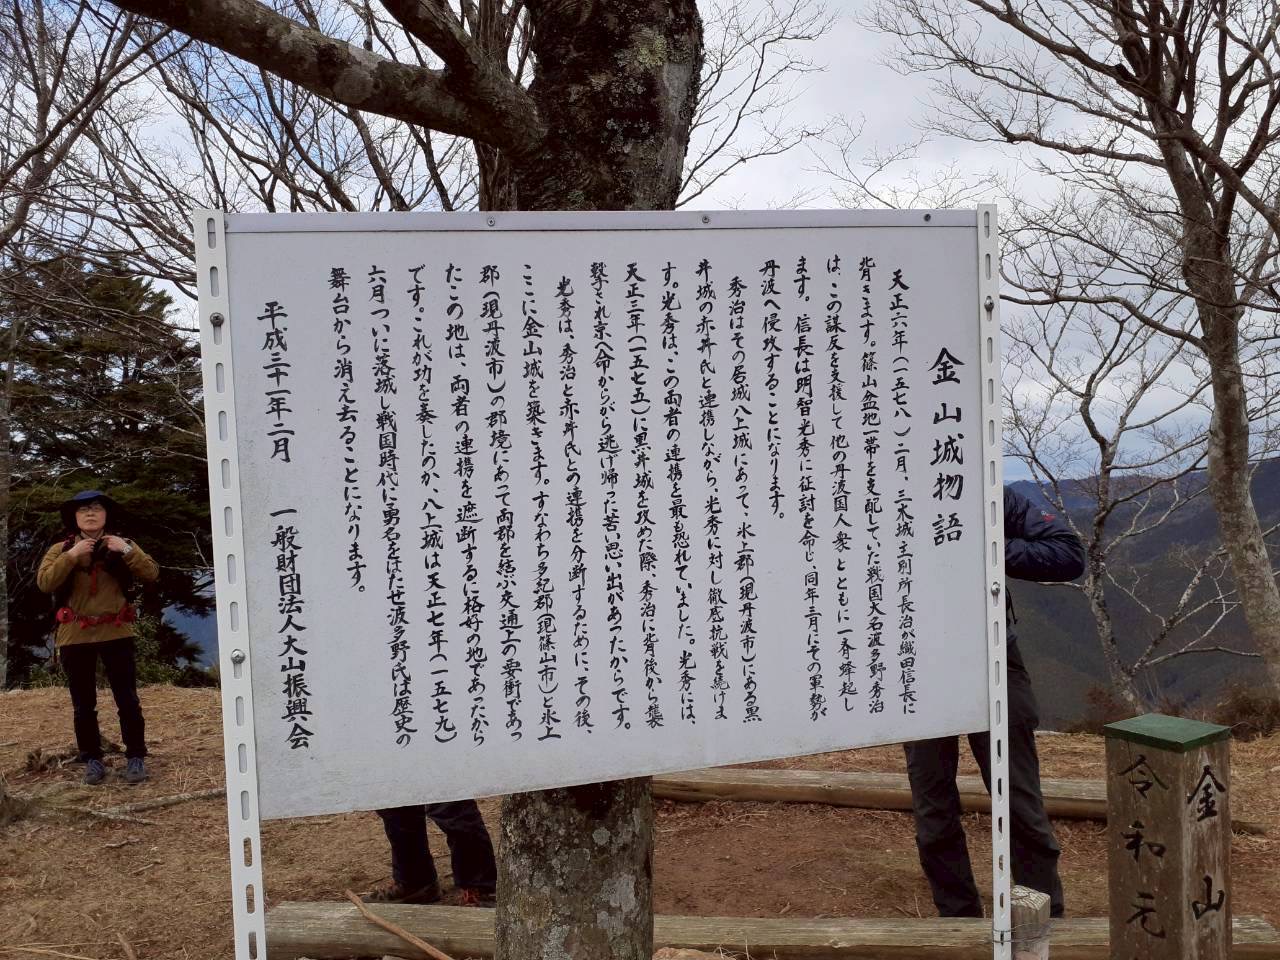 金山城物語
天正六年（一五七八）二月、三木城主別所長治が織田信長に
背きます。篠山盆地一帯を支配していた戦国大名波多野秀治
は、この謀反を支援して他の丹波国人衆とともに一斉蜂起し
ます。信長は明智光秀に征討を命じ、同年三月にその軍勢が
丹波へ侵攻することになります。
秀治はその居城八上城にあって、氷上郡（現丹波市）にある黒
井城の赤井氏と連携しながら、光秀に対し徹底抗戦を続けま
す。光秀は、この両者の連携を最も恐れていました。光秀には、
天正三年（一五七五）に黒井城を攻めた際、秀治に背後から襲
撃され京へ命からがら逃げ帰った苦い思い出があったからです。
光秀は、秀治と赤井氏との連携を分断するために、その後、
ここに金山城を築きます。すなわち多紀郡（現篠山市）と氷上
郡（現丹波市）の郡境にあって両郡を結ぶ交通上の要衝であっ
たこの地は、両者の連携を遮断するに格好の地であったから
です。これが功を奏したのか、八上城は天正七年（一五七九）
六月ついに落城し戦国時代に勇名をはせた波多野氏は歴史の
舞台から消え去ることになります。
平成三十一年二月　一般財団法人大山振興会
金山
令和元